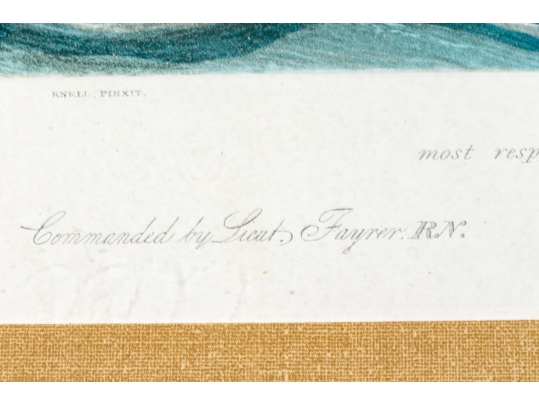 KNELL, PINXIT.
most resp
Commanded by Lieut. Fayrer. RN.